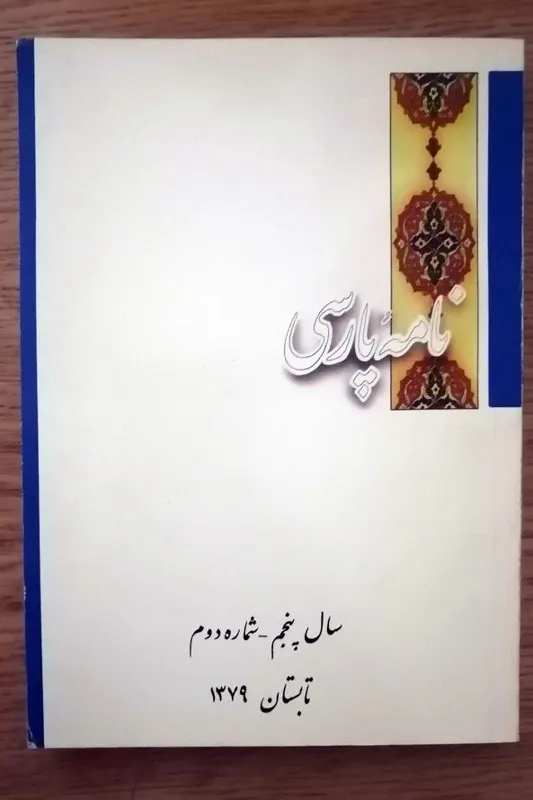 نامهٔ پارسی
سال پنجم - شماره دوم
تابستان ۱۳۷۹